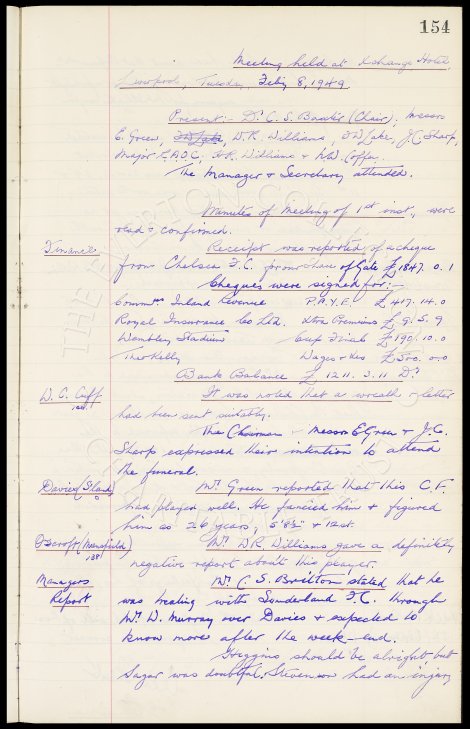 154
Meeting held at Exchange Hotel,
Liverpool, Tuesday, Feby 8, 1949.
Present:- Dr. C. S. Baxter (Chair), Messrs
E. Green, W.R. Williams, J. C. Sharp,
Major R.A.O.C. & R.
The Manager & Secretary attended.
Minutes of Meeting of 1st inst., were
read & confirmed.
Finance
Receipt was reported of a cheque
from Chelsea F.C. from share of Gate £1847. 0. 1
Cheques were signed for:-
Commrs Inland Revenue P.A.Y.E. £417. 14. 0
Royal Insurance Co Ltd. Xtra Premiums £9. 5. 9
Wembley Stadium Cup Final £190. 10. 0
Theo Kelly Wages & Exs £500. 0. 0
Bank Balance £1211. 3. 11 Dr
W. C. Cuff
It was noted that a wreath & letter
had been sent suitably.
The Chairman & Messrs E Green & J.C.
Sharp expressed their intention to attend
the funeral.
Davies (S'land)
Mr. Green reported that this C.F.
had played well. He fancied him & figured
him as 26 years, 5'8½" & 12st.
Oscroft (Mansfield)
Mr. W.R. Williams gave a definitely
negative report about this player.
Managers
Report
Mr. C. S. Britton stated that he
was treating with Sunderland F.C. through
Mr. W. Murray over Davies & expected to
know more after the week-end.
Higgins should be alright but
Sagar was doubtful. Stevenson had an injury